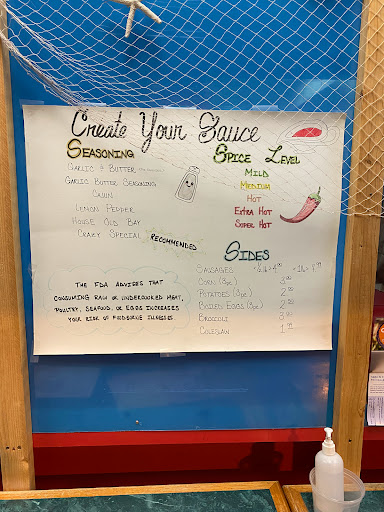 Create Your Sauce
Seasoning
Garlic & Butter
Garlic Butter Seasoning
Cajun
Lemon Pepper
House Old Bay
Crazy Special
Recommended
Spice Level
Mild
Medium
Hot
Extra Hot
Super Hot
Sides
Sausages
Corn (3pc) 3.00
Potatoes (3pc) 2.00
Boiled Eggs (2pc) 2.00
Broccoli
Coleslaw
The FDA advises that
consuming raw or undercooked meat,
poultry, seafood, or eggs increases
your risk of foodborne illness